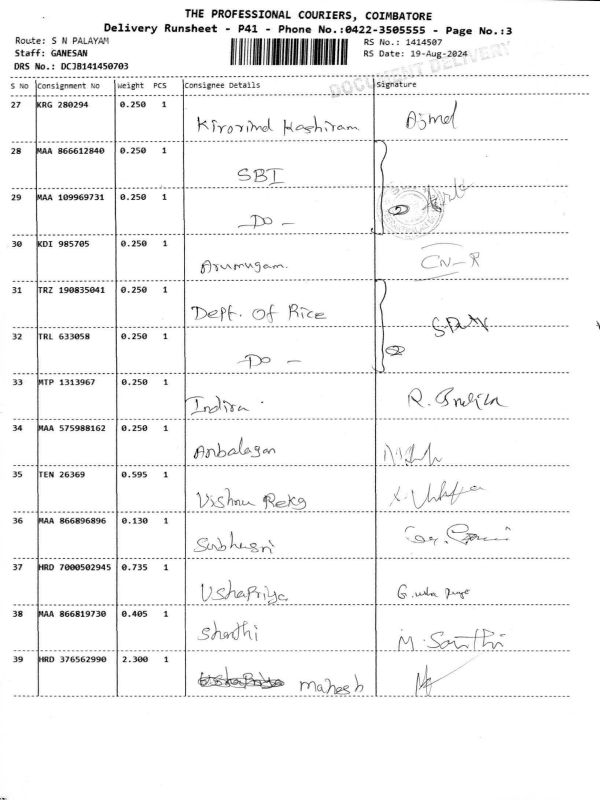 THE PROFESSIONAL COURIERS, COIMBATORE
Delivery Runsheet - P41 - Phone No.:0422-3505555 - Page No.:3
Route: S N PALAYAM RS No.: 1414507
Staff: GANESAN RS Date: 19-Aug-2024
DRS No.: DCJB141450703
DOCUMENT DELIVERY
S No Consignment No Weight PCS Consignee Details Signature
27 KRG 280294 0.250 1
Kirorimd Kashiram
28 MAA 866612840 0.250 1
SBI
29 MAA 109969731 0.250 1
- Do - 2
30 KDI 985705 0.250 1
Arumugam. CN-R
31 TRZ 190835041 0.250 1
Dept. Of Rice
32 TRL 633058 0.250 1
- Do - 2
33 MTP 1313967 0.250 1
Indira.
34 MAA 575988162 0.250 1
Anbalagan
35 TEN 26369 0.595 1
Vishnu Rekg
36 MAA 866896896 0.130 1
Subhasri
37 HRD 7000502945 0.735 1
UshaPriya
38 MAA 866819730 0.405 1
Shanthi M. Santhi
39 HRD 376562990 2.300 1
mahesh